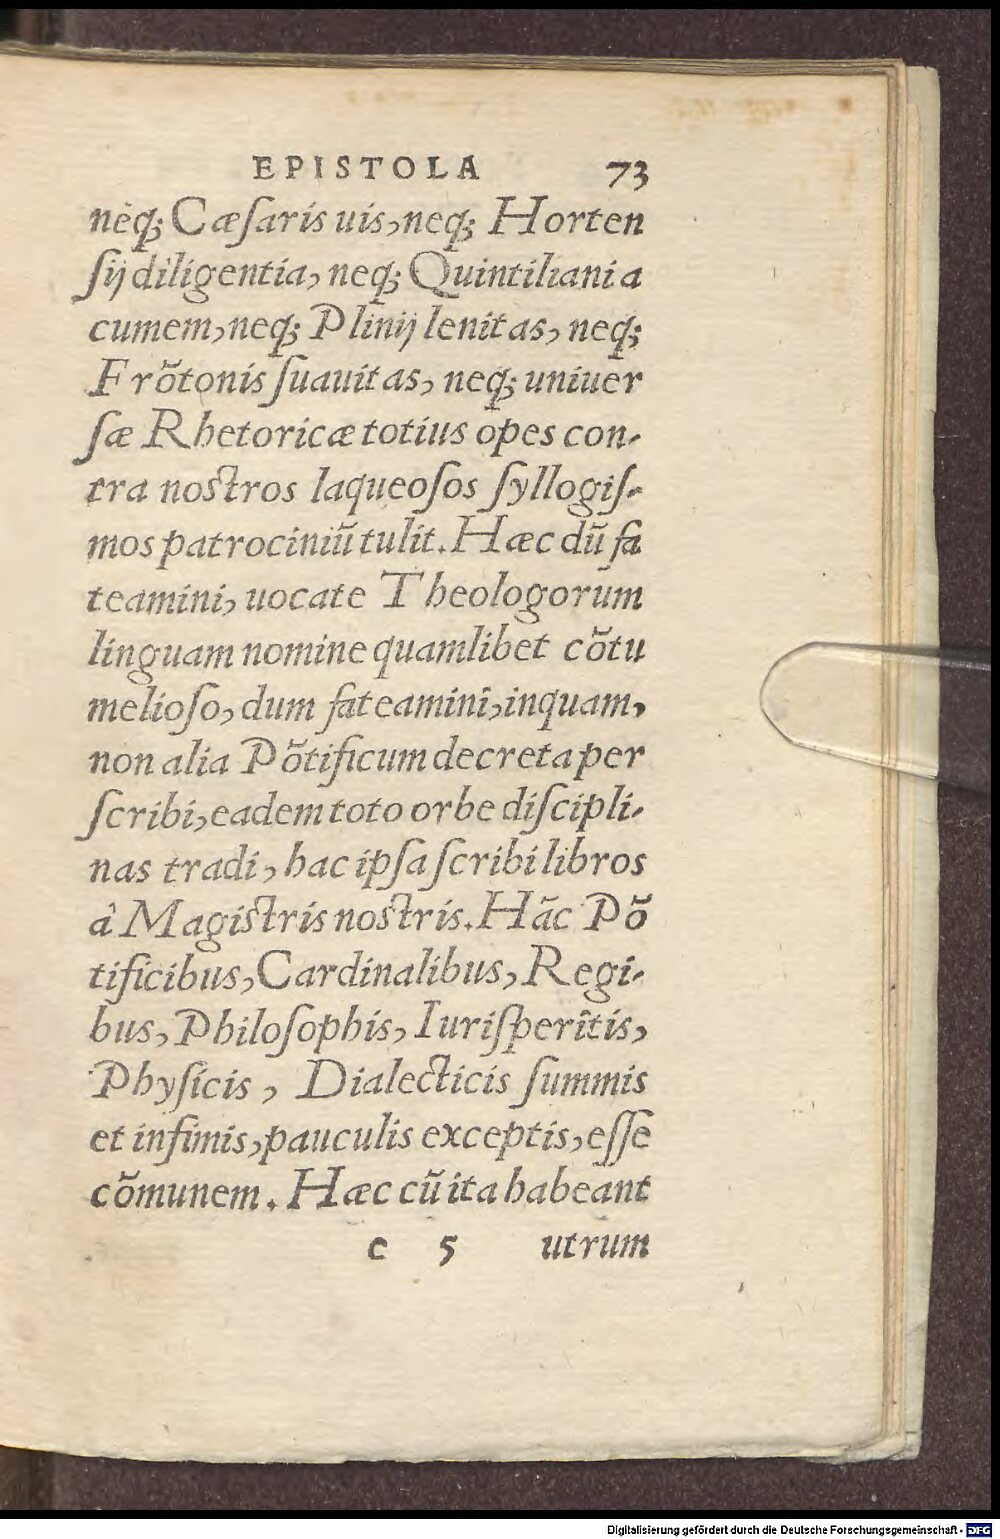 EPISTOLA 73
neq; Cæſaris uis, neq; Horten
ſij diligentia, neq; Quintiliani a
cumem, neq; Plinij lenitas, neq;
Frõtonis ſuauitas, neq; uniuer
ſæ Rhetoricæ totius opes con-
tra nostros laqueoſos ſyllogiſ-
mos patrociniũ tulit. Hæc dũ fa
teamini, uocate Theologorum
linguam nomine quamlibet cõtu
melioſo, dum fateamini, inquam,
non alia Põtificum decreta per
ſcribi, eadem toto orbe diſcipli-
nas tradi, hac ipſa ſcribi libros
à Magistris nostris. Hãc Põ
tificibus, Cardinalibus, Regi-
bus, Philoſophis, Iuriſperitis,
Phyſicis, Dialecticis ſummis
et infimis, pauculis exceptis, eſſe
cõmunem. Hæc cũ ita habeant
c 5 utrum
Digitalisierung gefördert durch die Deutsche Forschungsgemeinschaft - DFG